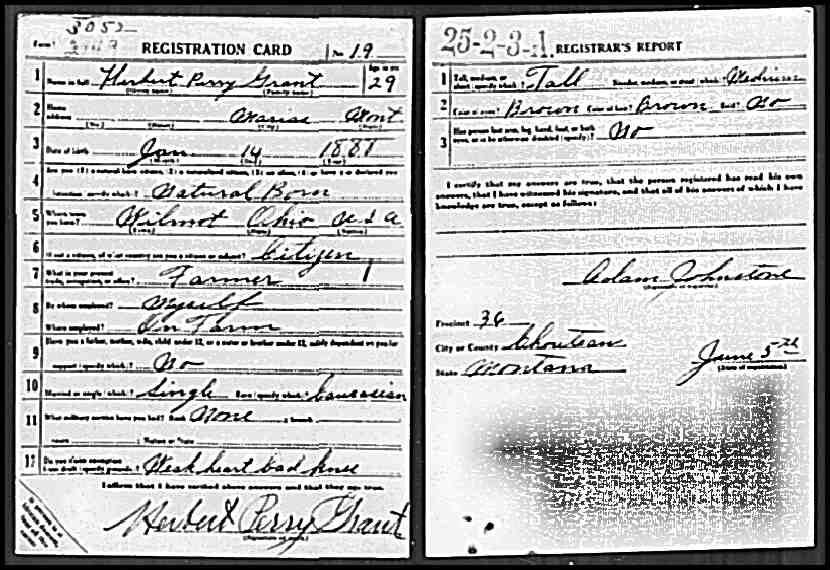 3052
Form 1 REGISTRATION CARD No. 19
1 Name in full Herbert Perry Grant Age, in yrs. 29
(Given name) (Family name)
2 Home address Mont
(No.) (Street) (City) (State)
3 Date of birth Jan 14 1888
(Month) (Day) (Year)
4 Are you (1) a natural born citizen, (2) a naturalized citizen, (3) an alien, (4) or have you declared your
intention (specify which)? Natural Born
5 Where were you born? Wilmot Ohio U S A
(Town) (State) (Nation)
6 If not a citizen, of what country are you a citizen or subject? Citizen
7 What is your present trade, occupation, or office? Farmer
8 By whom employed? Myself
Where employed? On Farm
9 Have you a father, mother, wife, child under 12, or a sister or brother under 12, solely dependent on you for
support (specify which)? No
10 Married or single (which)? Single Race (specify which)? Caucasian
11 What military service have you had? Rank None ; branch
years ; Nation or State
12 Do you claim exemption from draft (specify grounds)? Weak heart bad knee
I affirm that I have verified above answers and that they are true.
Herbert Perry Grant
(Signature or mark)
25-2-3-1. REGISTRAR'S REPORT
1 Tall, medium, or short (specify which)? Tall Slender, medium, or stout (which)? Medium
2 Color of eyes? Brown Color of hair? Brown Bald? No
3 Has person lost arm, leg, hand, foot, or both eyes, or is he otherwise disabled (specify)? No
I certify that my answers are true, that the person registered has read his own
answers, that I have witnessed his signature, and that all of his answers of which I have
knowledge are true, except as follows:
Adam Johnstone
(Signature of registrar)
Precinct 36
City or County Chouteau
State Montana June 5th
(Date of registration)